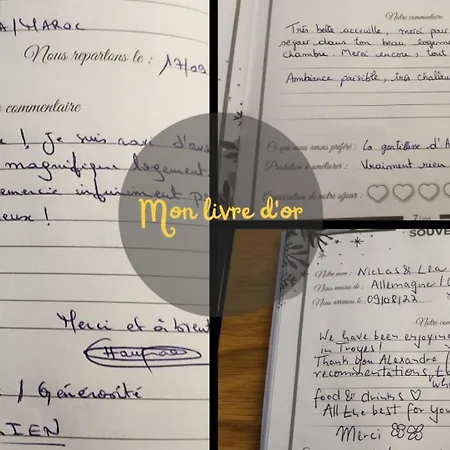 A/MAROC
Nous repartons le : 17/09
commentaire
! Je suis ravi d'av
magnifique logement
emercie infiniment p
eux !
Merci et à bient
/ Générosité
IEN
Notre commentaire
Très belle accueille, merci pour
séjour dans ton beau logeme
chambre. Merci encore, tout
Ambiance paisible, très chaleu
Ce que nous avons préféré : La gentillesse d'A
Prestation à améliorer : Vraiment rien
Appréciation de notre séjour :
Mon livre d'or
SOUVE
Notre nom : Niclas & Lea
Nous venons de : Allemagne / (
Nous sommes le : 09/08/22
Notre com
We have been enjoying
in Troyes!
Thank you Alexandre f
recommendations,
whi
food & drinks ♡
All the best for you
Merci